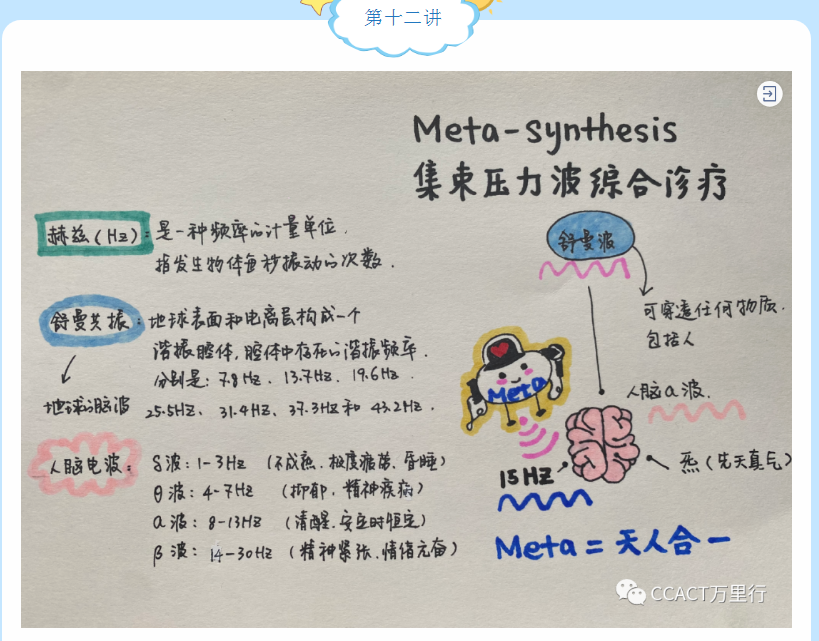 第十二讲
Meta-synthesis
集束压力波综合诊疗
赫兹(Hz):是一种频率的计量单位.
指发生物体每秒振动的次数.
舒曼共振:地球表面和电离层构成一个
谐振腔体,腔体中存在的谐振频率.
分别是:7.8Hz、13.7Hz、19.6Hz
25.5Hz、31.4Hz、37.3Hz和43.2Hz.
地球的脑波
人脑电波:
δ波:1-3Hz (不成熟.极度疲劳、昏睡)
θ波:4-7Hz (抑郁.精神疾病)
α波:8-13Hz (清醒.安立时恒定)
β波:14-30Hz (精神紧张.情绪亢奋)
舒曼波
可穿透任何物质.
包括人
Meta
人脑α波.
15HZ
炁(先天真气)
Meta=天人合一
CCACT万里行